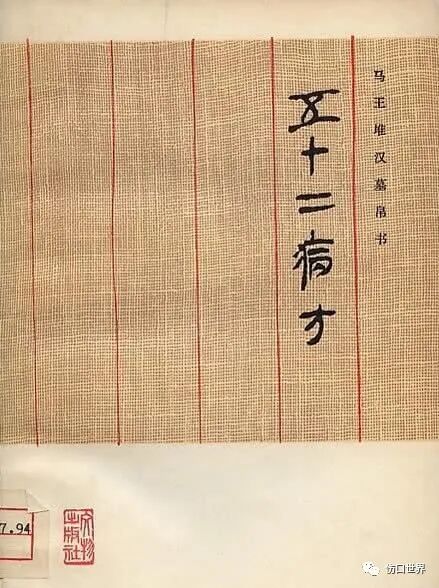 马王堆汉墓帛书
五十二病方
7.94
文物
出版社
伤口世界